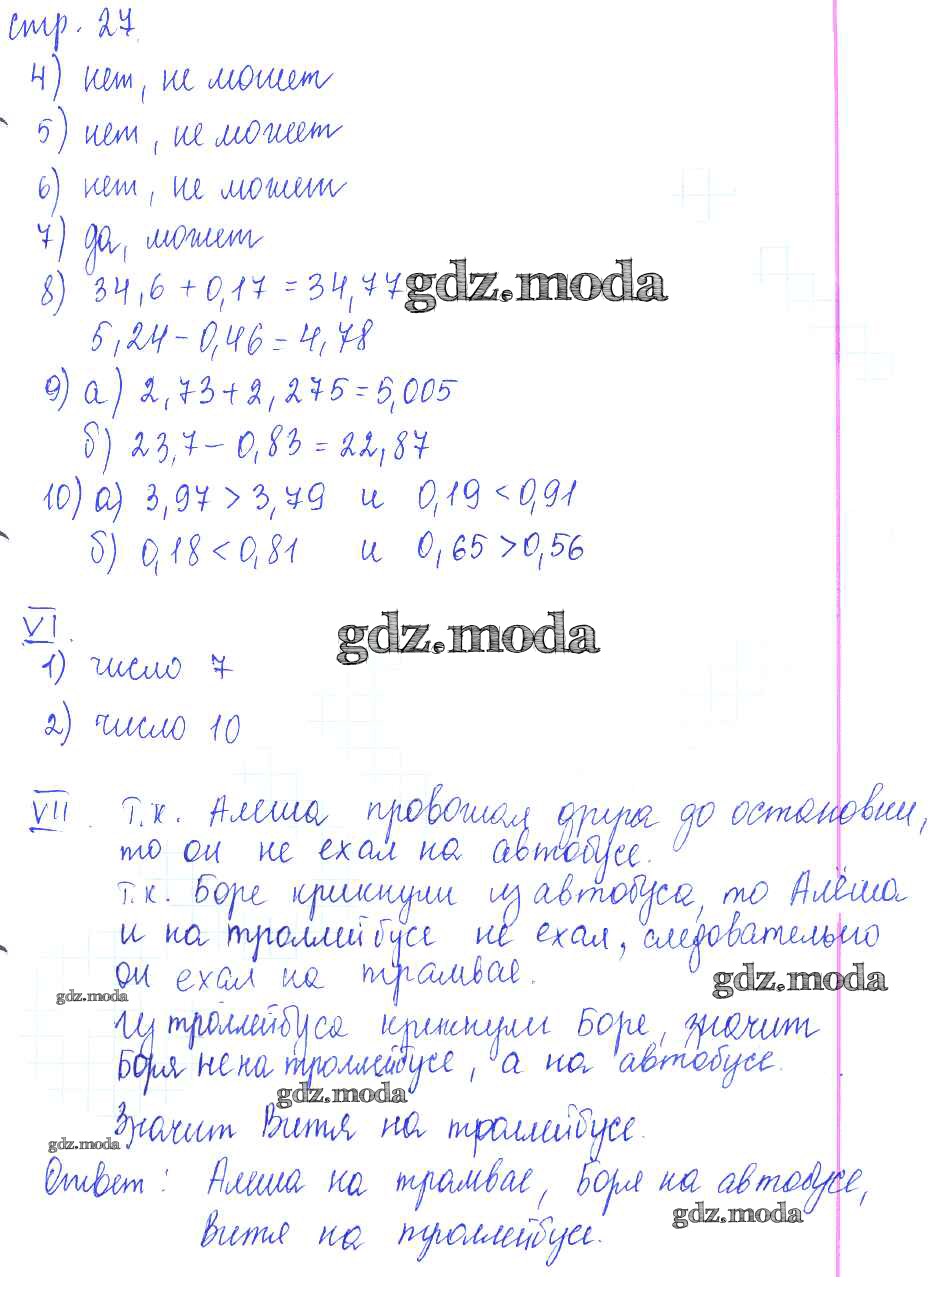 стр. 27.
4) нет, не может
5) нет, не может
6) нет, не может
7) да, может
8) 34,6 + 0,17 = 34,77 gdz.moda
5,24 - 0,46 = 4,78
9) а) 2,73 + 2,275 = 5,005
б) 23,7 - 0,83 = 22,87
10) а) 3,97 > 3,79 и 0,19 < 0,91
б) 0,18 < 0,81 и 0,65 > 0,56
VI. gdz.moda
1) число 7
2) число 10
VII. Т.к. Алеша провожал друга до остановки,
то он не ехал на автобусе.
Т.к. Боре крикнули из автобуса, то Алёша
и на троллейбусе не ехал, следовательно
он ехал на трамвае. gdz.moda
gdz.moda
Из троллейбуса крикнули Боре, значит
Боря не на троллейбусе, а на автобусе.
gdz.moda
Значит Витя на троллейбусе.
gdz.moda
Ответ: Алеша на трамвае, Боря на автобусе,
gdz.moda
Витя на троллейбусе.